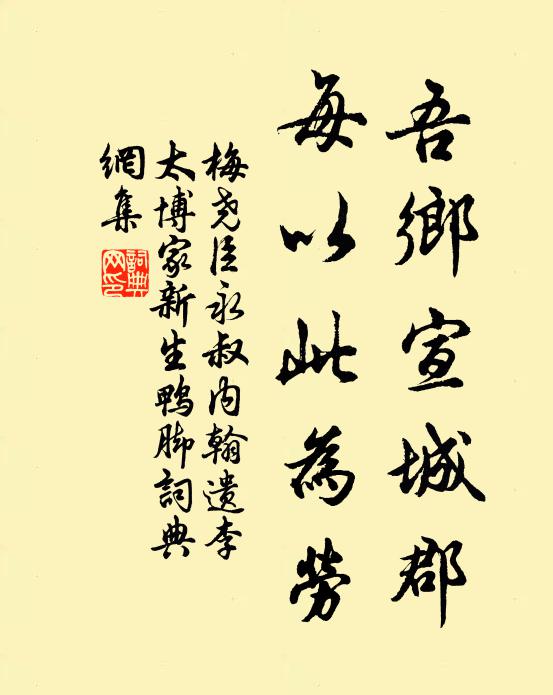 吾鄉宣城郡
每以此為勞
梅尧臣永叔内翰遺李
太博家新生鸭脚詞典
網集
詞典網印